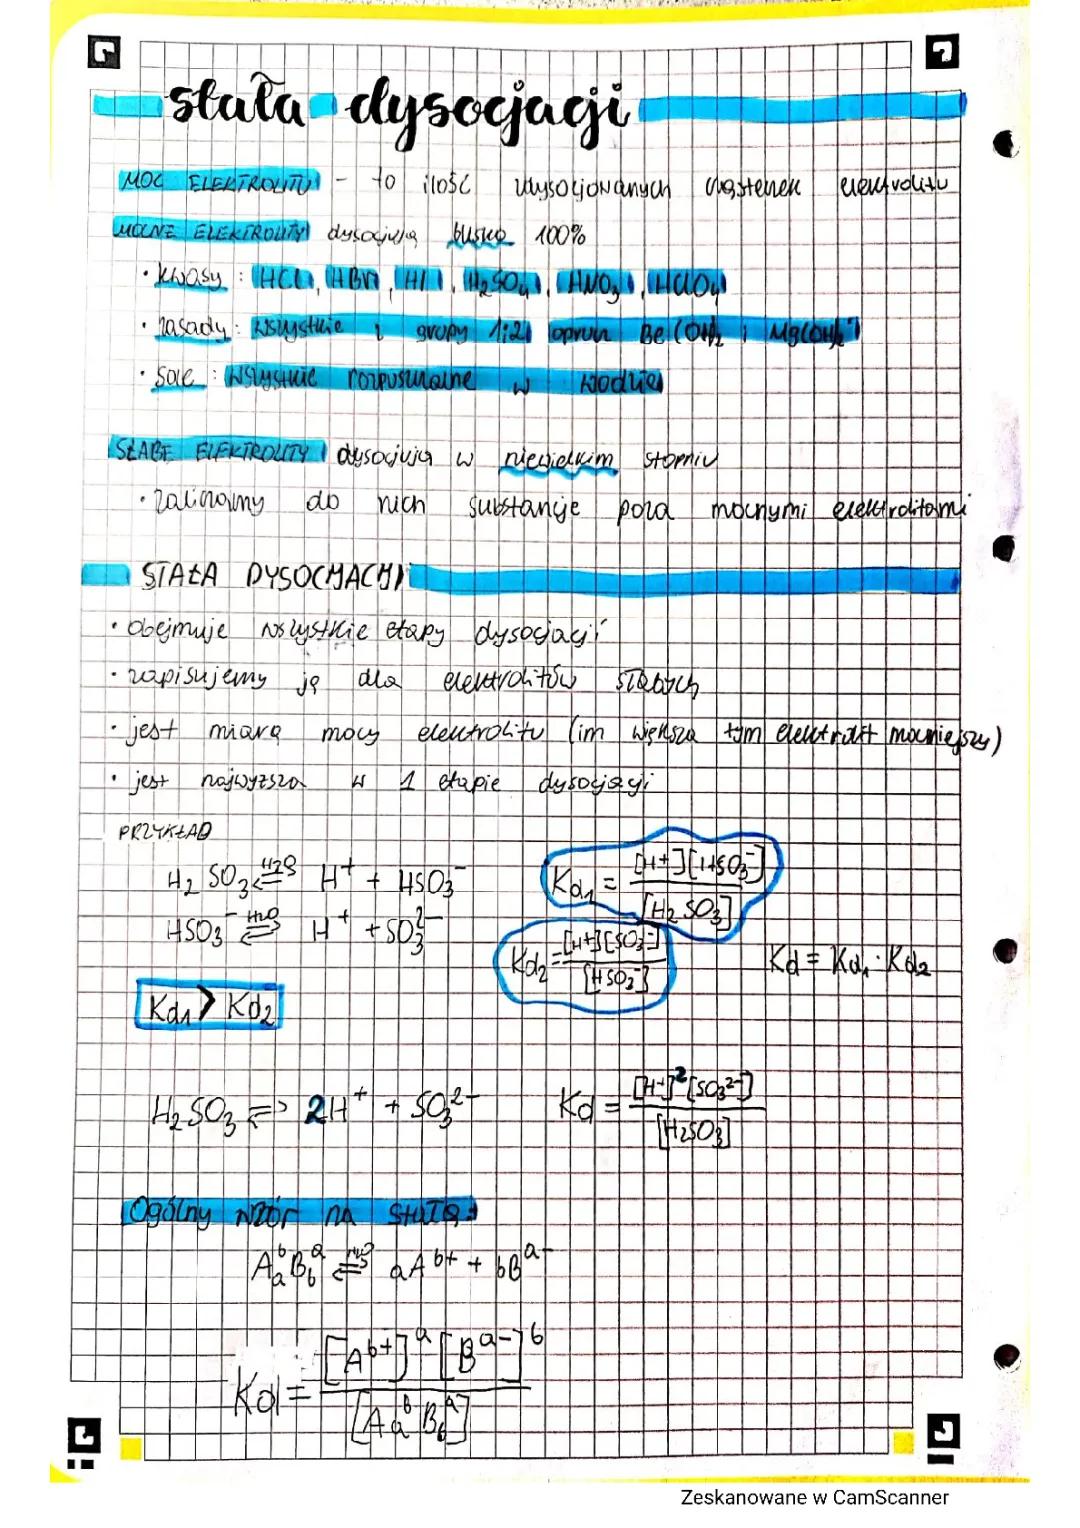 stała dysocjacji
MOC ELEKTROLITU - to ilość zdysocjonowanych cząsteczek elektrolitu
MOCNE ELEKTROLITY dysocjują blisko 100%
• kwasy : HCl, HBr, HI, H₂SO₄, HNO₃, HClO₄
• zasady : wszystkie z grupy 1 i 2 oprócz Be(OH)₂ i Mg(OH)₂
• sole : wszystkie rozpuszczalne w wodzie
SŁABE ELEKTROLITY dysocjują w niewielkim stopniu
• zaliczamy do nich substancje poza mocnymi elektrolitami
STAŁA DYSOCJACJI
• obejmuje wszystkie etapy dysocjacji
• zapisujemy ją dla elektrolitów słabych
• jest miarą mocy elektrolitu (im większa tym elektrolit mocniejszy)
• jest najwyższa w 1 etapie dysocjacji
PRZYKŁAD
H₂SO₃ ⇌ H₂O H⁺ + HSO₃⁻ Kd₁ = [H⁺][HSO₃⁻] / [H₂SO₃]
HSO₃⁻ ⇌ H₂O H⁺ + SO₃²⁻ Kd₂ = [H⁺][SO₃²⁻] / [HSO₃⁻] Kd = Kd₁ · Kd₂
Kd₁ > Kd₂
H₂SO₃ ⇌ 2H⁺ + SO₃²⁻ Kd = [H⁺]²[SO₃²⁻] / [H₂SO₃]
Ogólny wzór na stałą:
AₐᵇB_bᵃ ⇌ H₂O aAᵇ⁺ + bBᵃ⁻
Kd = [Aᵇ⁺]ᵃ [Bᵃ⁻]ᵇ / [AₐᵇB_bᵃ]
Zeskanowane w CamScanner